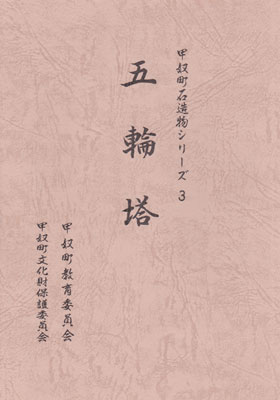 甲奴町石造物シリーズ 3
五輪塔
甲奴町教育委員会
甲奴町文化財保護委員会